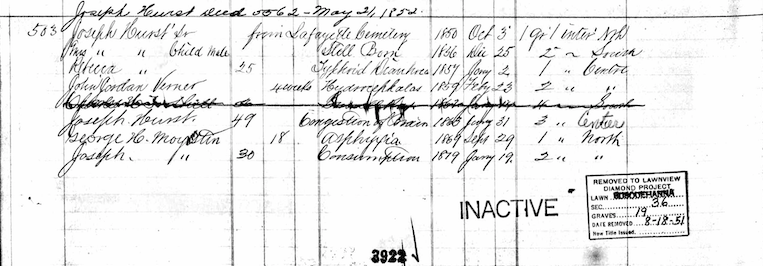 Joseph Hurst Deed 5562 - May 21, 1852.
503 Joseph Hurst Sr from Lafayette Cemetery 1850 Oct 3 1 gr inter Nth
Child Male Still Born 1856 Dec 25 2 " South
Rebecca " 25 Typhoid Diarrhoea 1857 Jany 2 1 " Centre
John Jordan Verner 4 weeks Hydrocephalas 1859 Feby 23 2 " "
Joseph Hurst 49 Congestion of Brain 1863 Jany 31 3 " Center
George H. 18 Asphixia 1869 Sept 29 1 " North
Joseph " 30 Consumption 1879 Jany 19. 2 " "
INACTIVE
REMOVED TO LAWNVIEW
DIAMOND PROJECT
LAWN SUSQUEHANNA
SEC. 36
GRAVES 19
DATE REMOVED 8-18-51
New Title Issued
3922